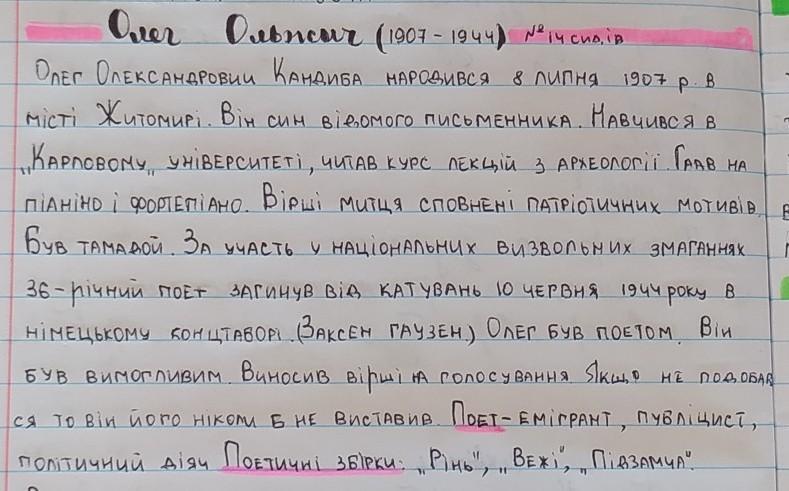 Олег Ольжич (1907-1944) № 14 сидів
Олег Олександрович Кандиба народився 8 липня 1907 р. в
місті Житомирі. Він син відомого письменника. Навчився в
„Карловому„ університеті, читав курс лекцій з археології. Грав на
піаніно і фортепіано. Вірші митця сповнені патріотичних мотивів.
Був тамадой. За участь у національних визвольних змаганнях
36-річний поет загинув від катувань 10 червня 1944 року в
німецькому концтаборі. (Заксен гаузен.) Олег був поетом. Він
був вимогливим. Виносив вірші на голосування. Якщо не подобав
ся то він його ніколи б не виставив. Поет-емігрант, публіцист,
політичний діяч Поетичні збірки: „Рінь", „Вежі", „Підзамча".